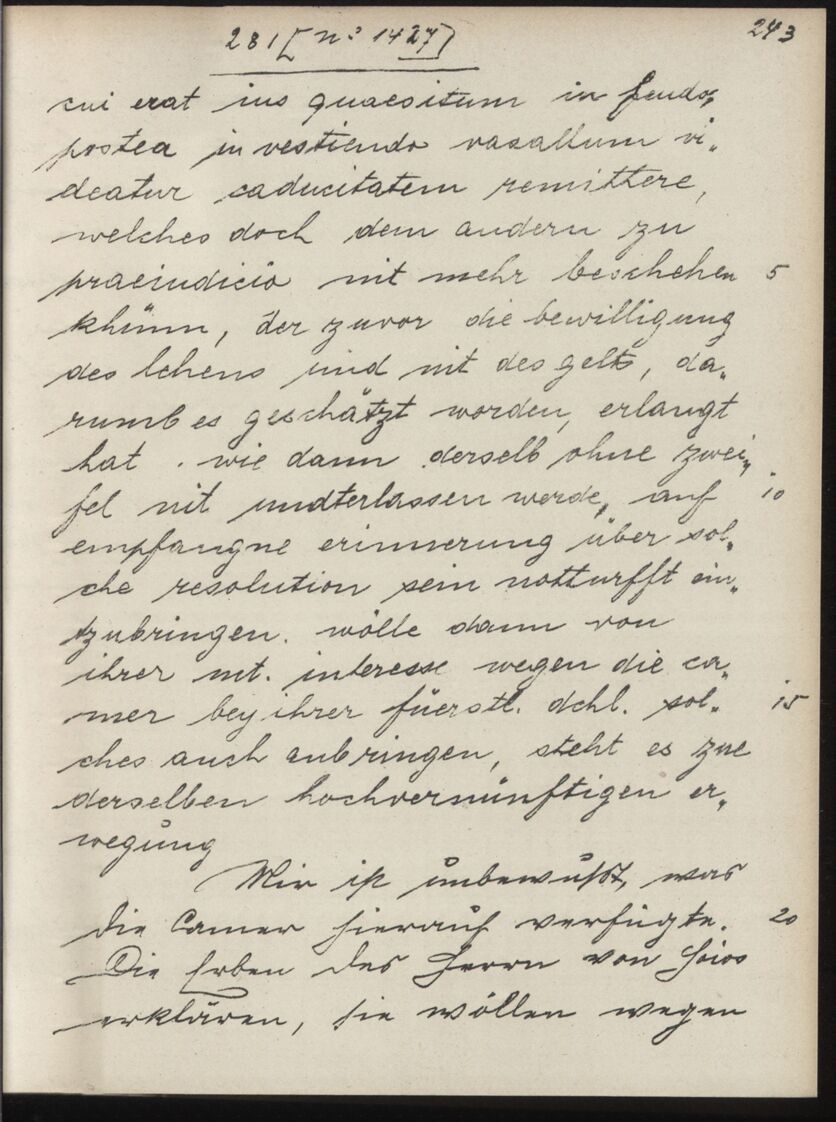 281 [n° 1427]
243
cui erat ius quaesitum in feudo,
postea investiendo vasallum vi„
deatur caducitatem remittere,
welches doch dem andern zu
praeiudicio nit mehr beschehen 5
khünn, der zuvor die bewilligung
des lehens und nit des gelts, da„
rumb es geschätzt worden, erlangt
hat. wie dann derselb ohne zwei„
fel nit undterlassen werde, auf 10
empfangne erinnerung über sol„
che resolution sein notturfft ein„
tzubringen. wölle dann von
ihrer mt. interesse wegen die ca„
mer bey ihrer füerstl. dchl. sol„ 15
ches auch anbringen, steht es zue
derselben hochvernünftigen er„
wegung
Mir ist unbewußt, was
die Camer hierauf verfügte. 20
Die Erben des Herrn von Hoios
erklären, sie wöllen wegen